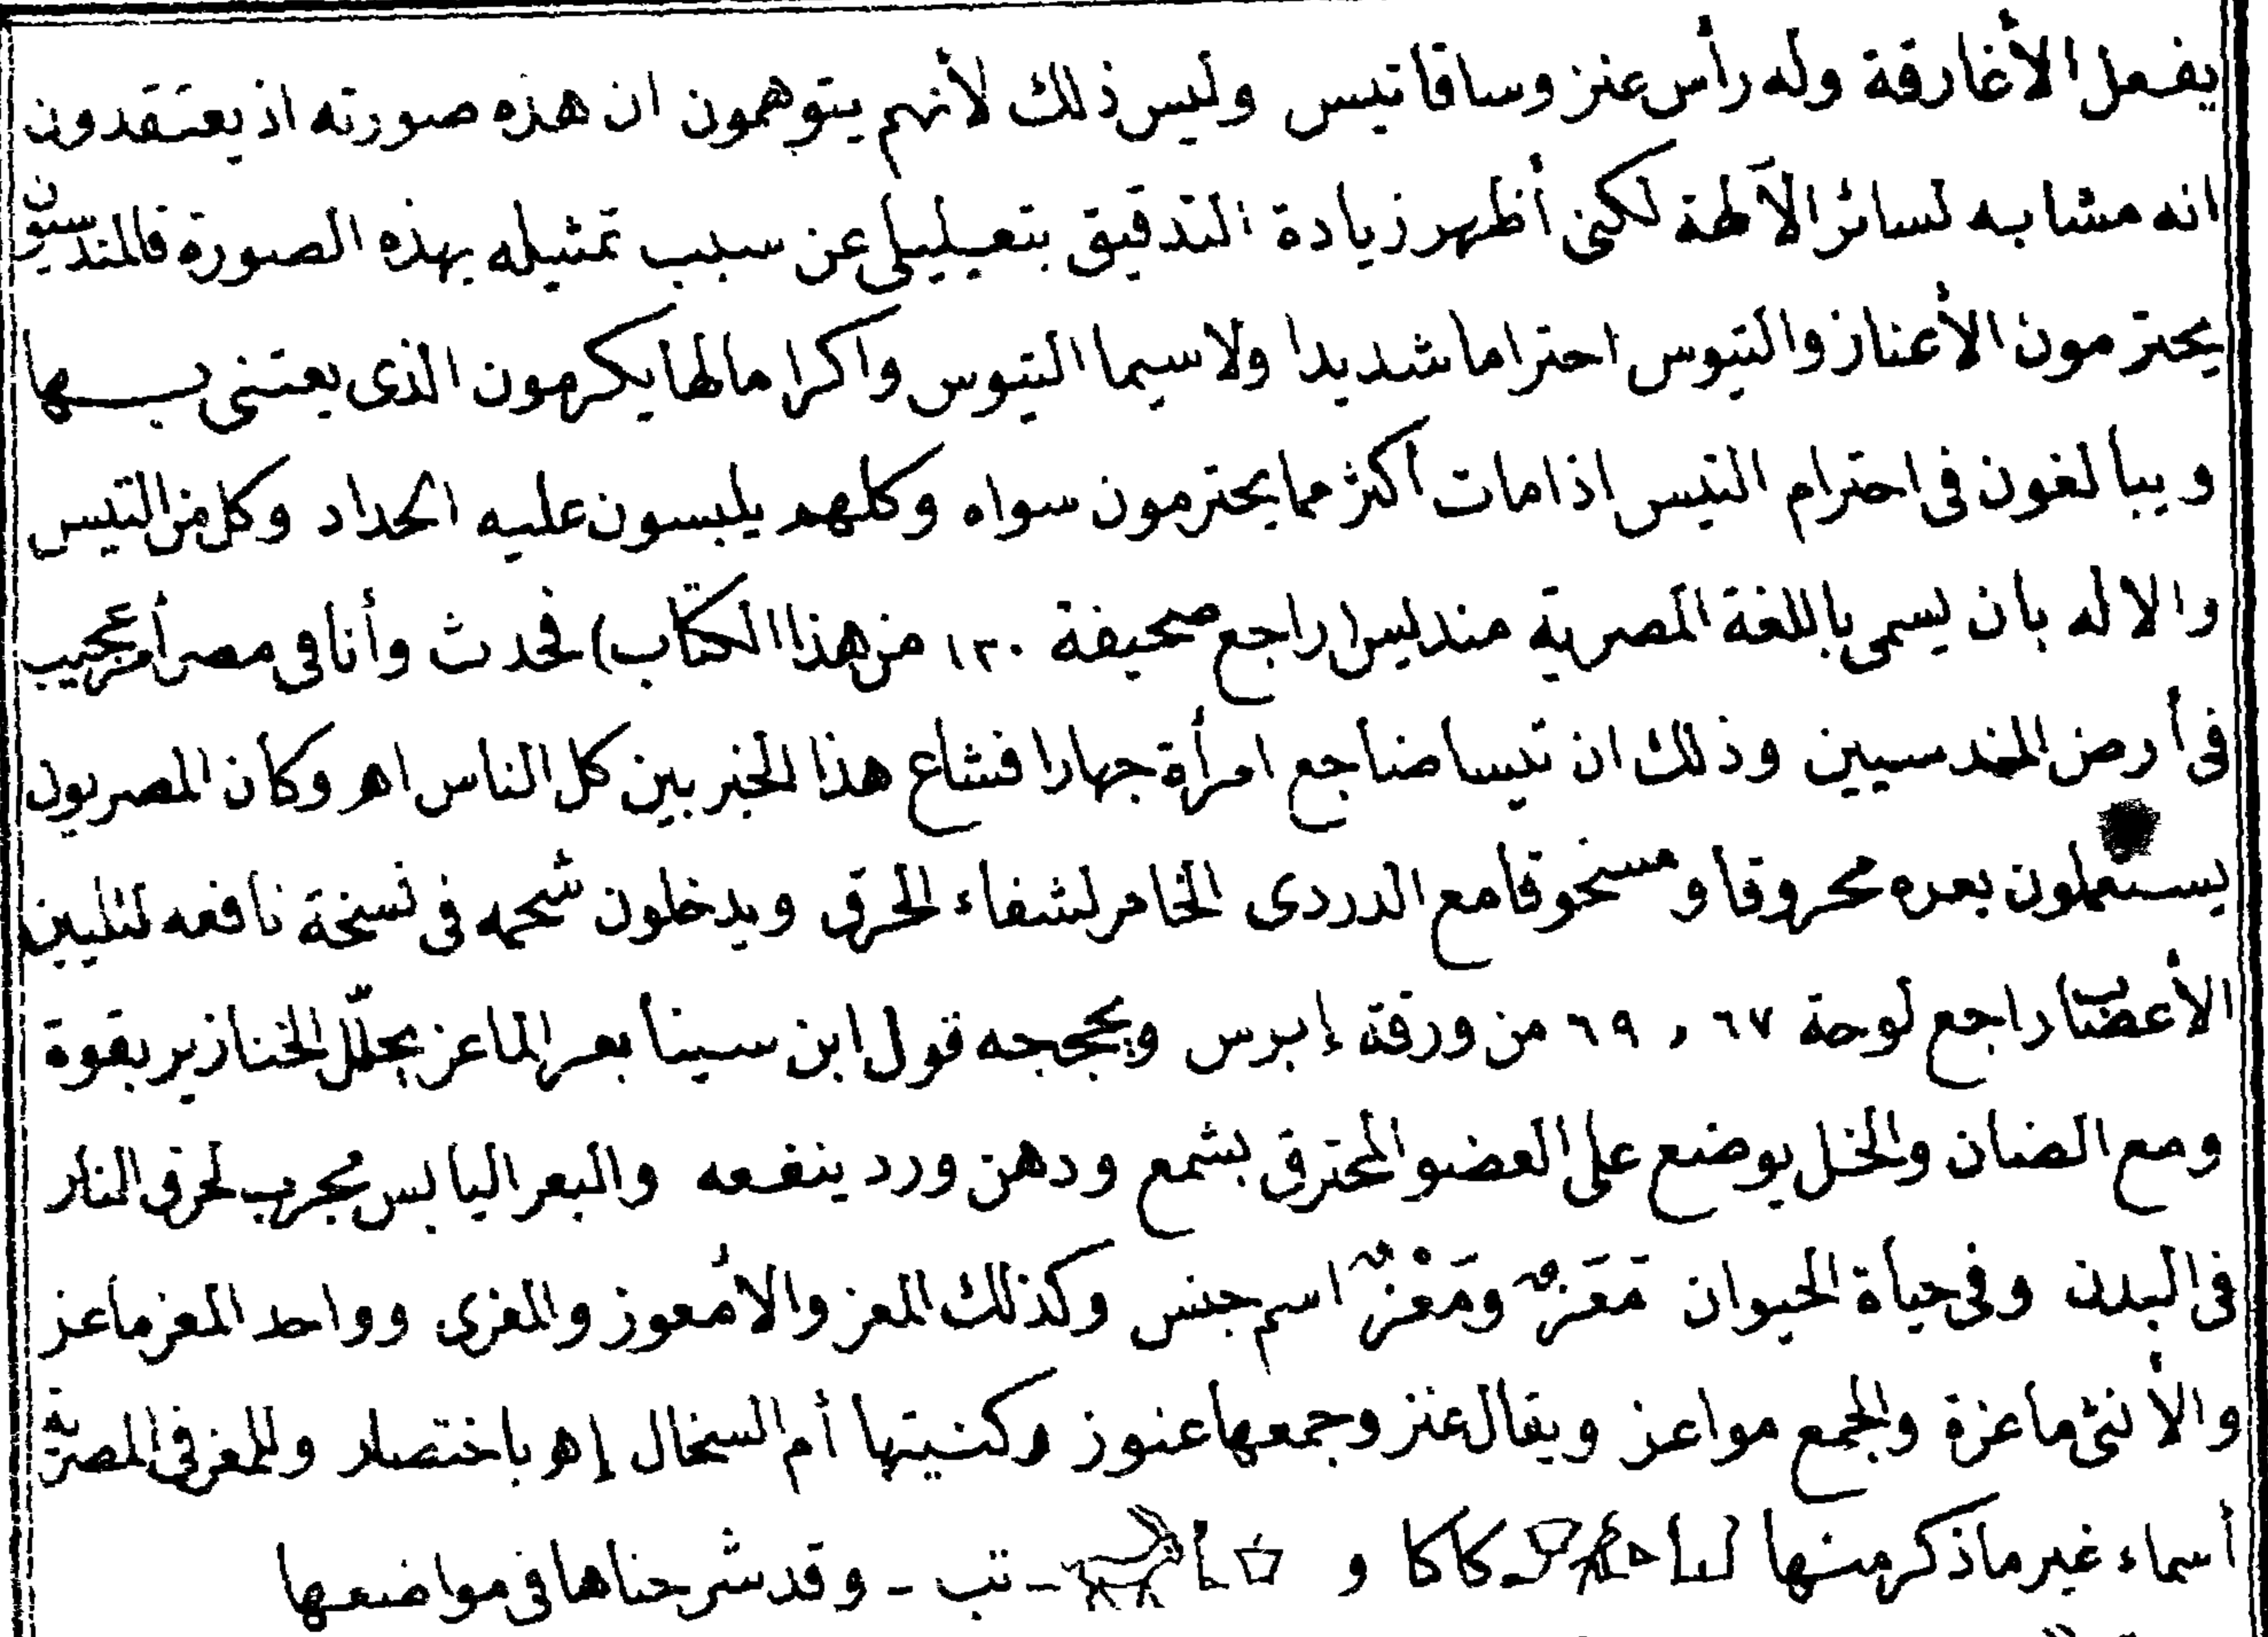 يفعل الأغارقة وله رأس عنز وساقا تيس وليس ذلك لأنهم يتوهمون ان هذه صورته اذ يعتقدون
انه مشابه لسائر الآلهة لكنى أظهر زيادة التدقيق بتعليلى عن سبب تمثيله بهذه الصورة فالمندسيون
يحترمون الأعناز والتيوس احتراما شديدا ولا سيما التيوس واكراما لها يكرمون الذى يعتنى بها
ويبالغون فى احترام التيس اذا مات أكثر مما يحترمون سواه وكلهم يلبسون عليه الحداد وكل من التيس
والاله بان يسمى باللغة المصرية منديس (راجع صحيفة ١٣٠ من هذا الكتاب) فحدث وأنا فى مصر أمر عجيب
فى أرض المندسيين وذلك ان تيسا ضاجع امرأة جهارا فشاع هذا الخبر بين كل الناس اهـ وكان المصريون
يستعملون بعره محروقا ومسحوقا مع الدردى الخامر لشفاء الحرق ويدخلون شحمه فى نسخة نافعه لتليين
الأعصاب راجع لوحة ٦٧ و ٦٩ من ورقة إبرس ويحججه قول ابن سينا بعر الماعز يحلّل الخنازير بقوة
ومع الضان والخل يوضع على العضو المحترق بشمع ودهن ورد ينفعه والبعر اليابس مجرب لحرق النار
فى البدن وفى حياة الحيوان مَعَزٌ ومَعْزٌ اسم جنس وكذلك المعز والأمعوز والمعزى وواحد المعز ماعز
والأنثى ماعزة والجمع مواعز ويقال عنز وجمعها عنوز وكنيتها أم السخال إهـ باختصار وللمعز فى المصرية
أسماء غير ما ذكر منها كاكا و - تب - وقد شرحناها فى مواضعها